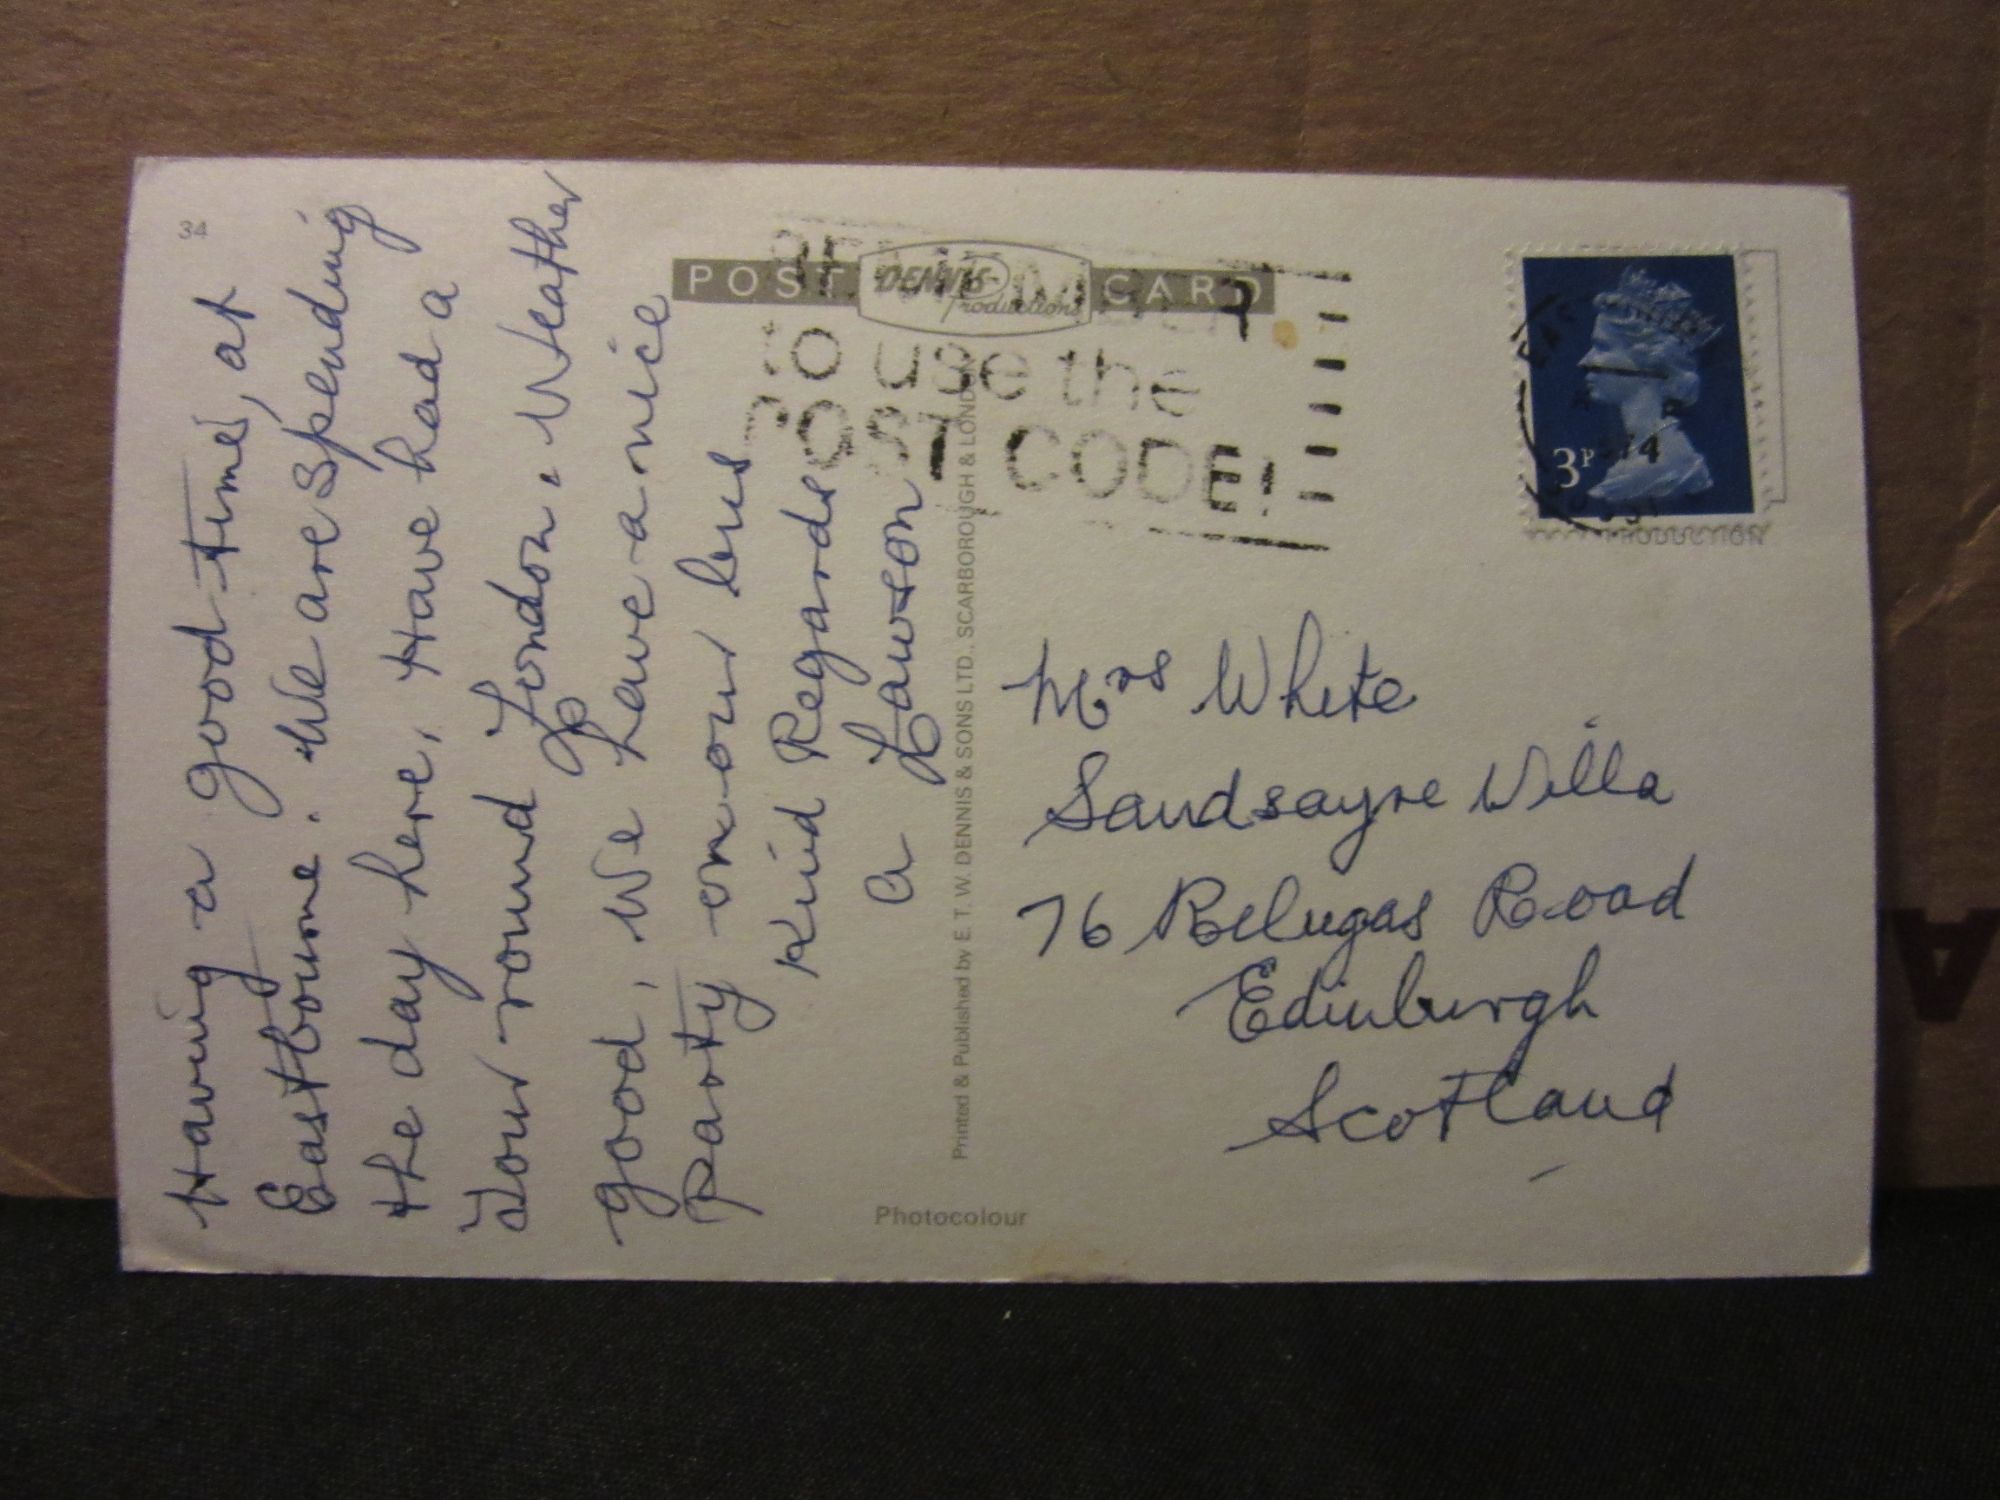 34
POST CARD
DENNIS
Productions
REMEMBER
to use the
POST CODE!
3P
Having a good time, at
Eastbourne. We are spending
the day here. Have had a
Tour round London. Weather
good, We have a nice
party on our bus
Kind Regards
a Lawson
Printed & Published by E. T. W. DENNIS & SONS LTD., SCARBOROUGH & LONDON
Photocolour
Mrs White
Sandsayre Villa
76 Relugas Road
Edinburgh
Scotland